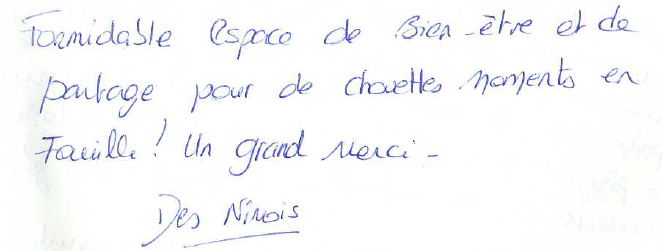 Formidable Espace de Bien-être et de
partage pour de chouettes moments en
Famille! Un grand Merci -
Des Nimois